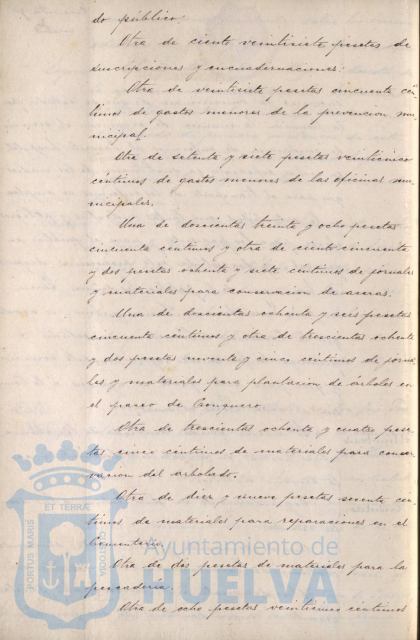 do público.
Otra de ciento veintisiete pesetas de
suscripciones y encuadernaciones.
Otra de veintisiete pesetas cincuenta cén
timos de gastos menores de la prevencion mu
nicipal.
Otra de setenta y siete pesetas veinticinco
céntimos de gastos menores de las oficinas mu
nicipales.
Una de doscientas treinta y ocho pesetas
cincuenta céntimos y otra de ciento cincuenta
y dos pesetas ochenta y siete céntimos de jornales
y materiales para conservacion de aceras.
Una de doscientas ochenta y seis pesetas
cincuenta céntimos y otra de trescientas ochenta
y dos pesetas noventa y cinco céntimos de jorna
les y materiales para plantacion de árboles en
el paseo de Conquero.
Otra de trescientas ochenta y cuatro pese
tas cinco céntimos de materiales para conser
vacion del arbolado.
Otra de diez y nueve pesetas sesenta cén
timos de materiales para reparaciones en el
Cementerio.
Otra de dos pesetas de materiales para la
pescadería.
Otra de ocho pesetas veinticinco céntimos
PORTUS MARIS ET TERRAE CUSTODIA
Ayuntamiento de
HUELVA